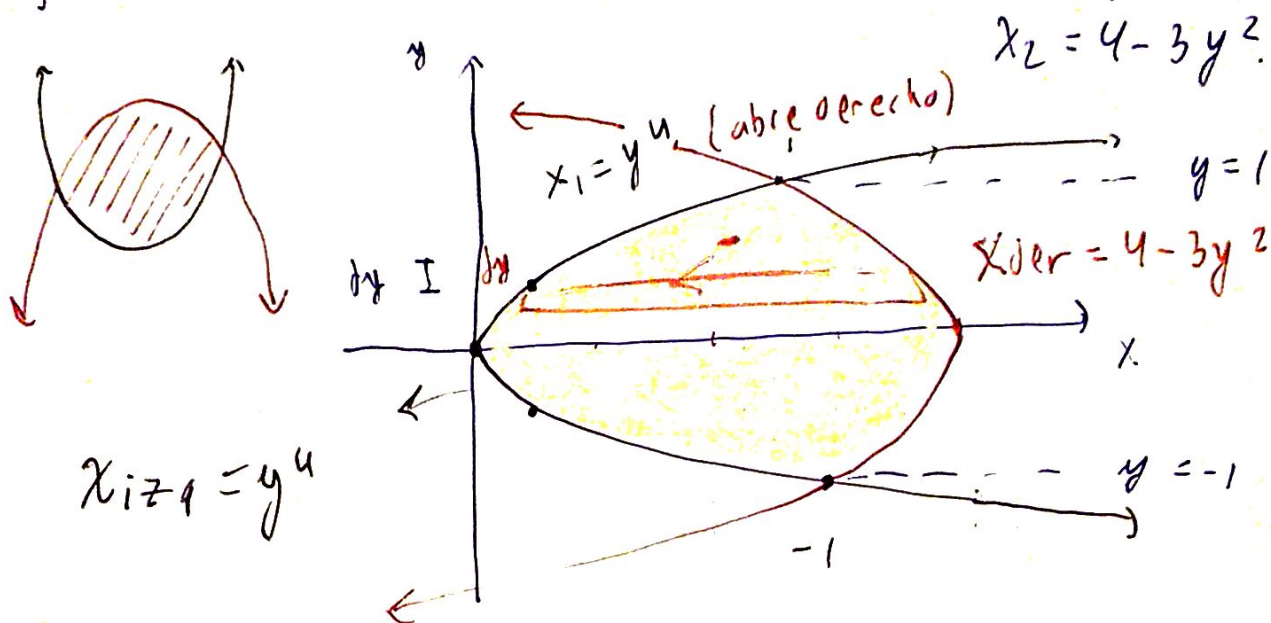 x₂ = 4 - 3y².
y
x₁ = y⁴ (abre derecho)
y = 1
x der = 4 - 3y²
dy I dy
x
x izq = y⁴
y = -1
-1